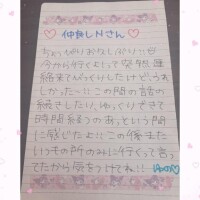 仲良しNさん
ちょっぴりおひさしぶり!!
今から行くよって突然連
絡来てびっくりしたけどうれ
しかったー!!この間の話の
続きしたり、ゆっくりできて
時間経つのあっという間
に感じたよ!!この後また
いつもの所のみに行くって言っ
てたから気をつけてね!!